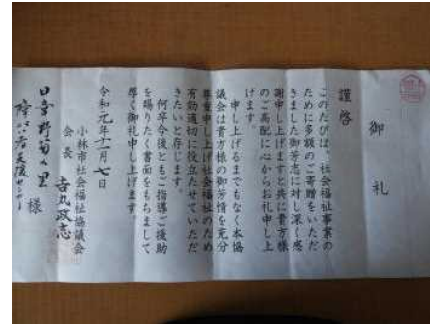 御礼
謹啓
このたびは、社会福祉事業の
ために多額のご寄贈をいただ
きました御芳志に対し深く感
謝申し上げますと共に貴方様
のご高配に心からお礼申し上
げます。
申し上げるまでもなく本協
議会は貴方様の御芳情を充分
尊重申し上げ社会福祉のため
有効適切に役立たせていただ
きたいと存じます。
何卒今後ともご指導ご援助
を賜りたく書面をもちまして
厚く御礼申し上げます。
令和元年十一月七日
小林市社会福祉協議会
会長 吉丸政志
様